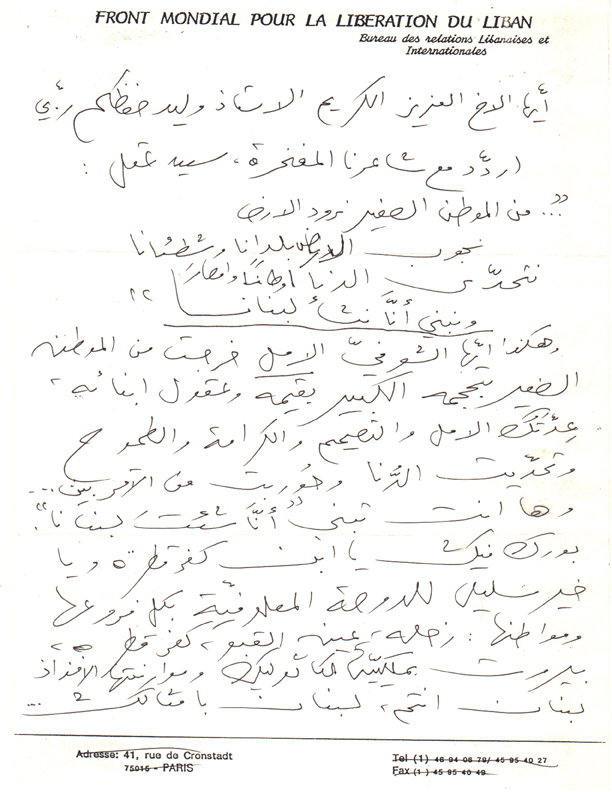 FRONT MONDIAL POUR LA LIBERATION DU LIBAN
Bureau des relations Libanaises et
Internationales
أيها الاخ العزيز الكريم الاستاذ وليد حفظكم ربي
اردّد مع شاعرنا المفخرة، سعيد عقل :
"... من الموطن الصغير نرود الارض
نجوب الارض بلدانا وشطئانا
نتحدّى الدنيا اوطانًا وامصارَا
ونبني أنَّا نشأْ لبنانا "
وهكذا ايّها الشوفيّ الاصل خرجت من الموطن
الصغير بحجمه الكبير بقيمه وعقول ابنائه،
عِدّتك الامل والتصميم والكرامة والطموح
وتحدّيت الدُّنا وحُوربت من الاقربين...
وها انت تبني "أنَّا شئتَ لبنانا".
بورك فيك يا ابن كفرقطرة ويا
خير سليل للدوحة المعلوفيّة بكل فروعها
ومواطنها : زحله، عينه القبو، كفرقطره،
بيروت الكاثوليك الافذاذ
لبنان انتم، لبنان بامثالك ...
Adresse: 41, rue de Cronstadt
75015 - PARIS
Tel (1) 46 94 06 79/ 45 95 40 27
Fax (1) 45 95 40 49